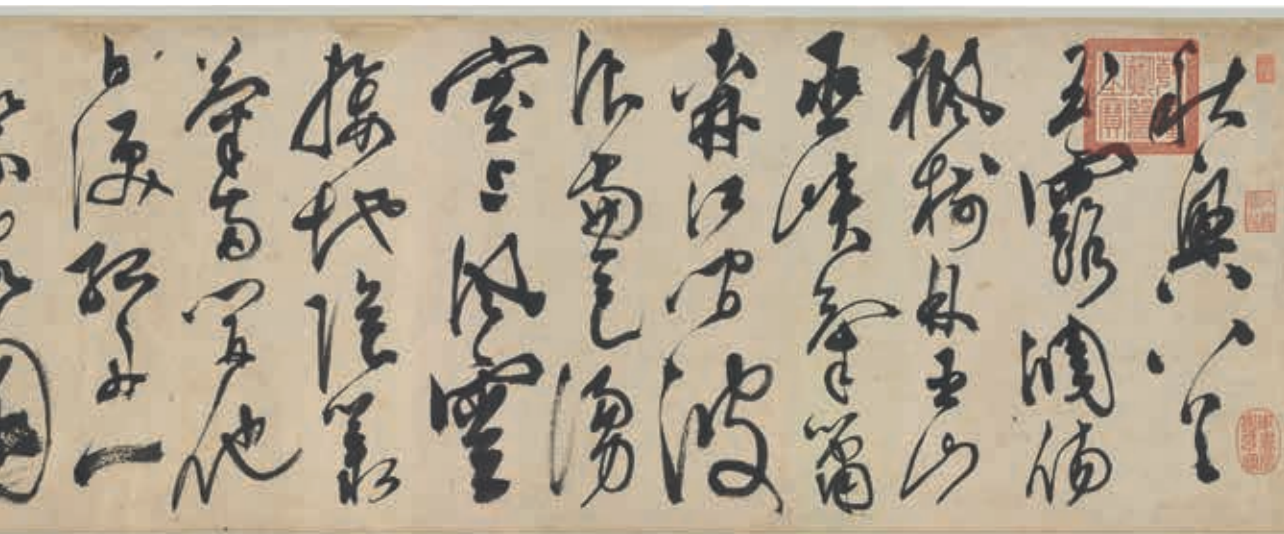 秋興八首
玉露凋傷
楓樹林巫山
巫峽氣蕭
森江間波
浪兼天湧
塞上風雲
接地陰叢
菊兩開他
日淚孤舟一